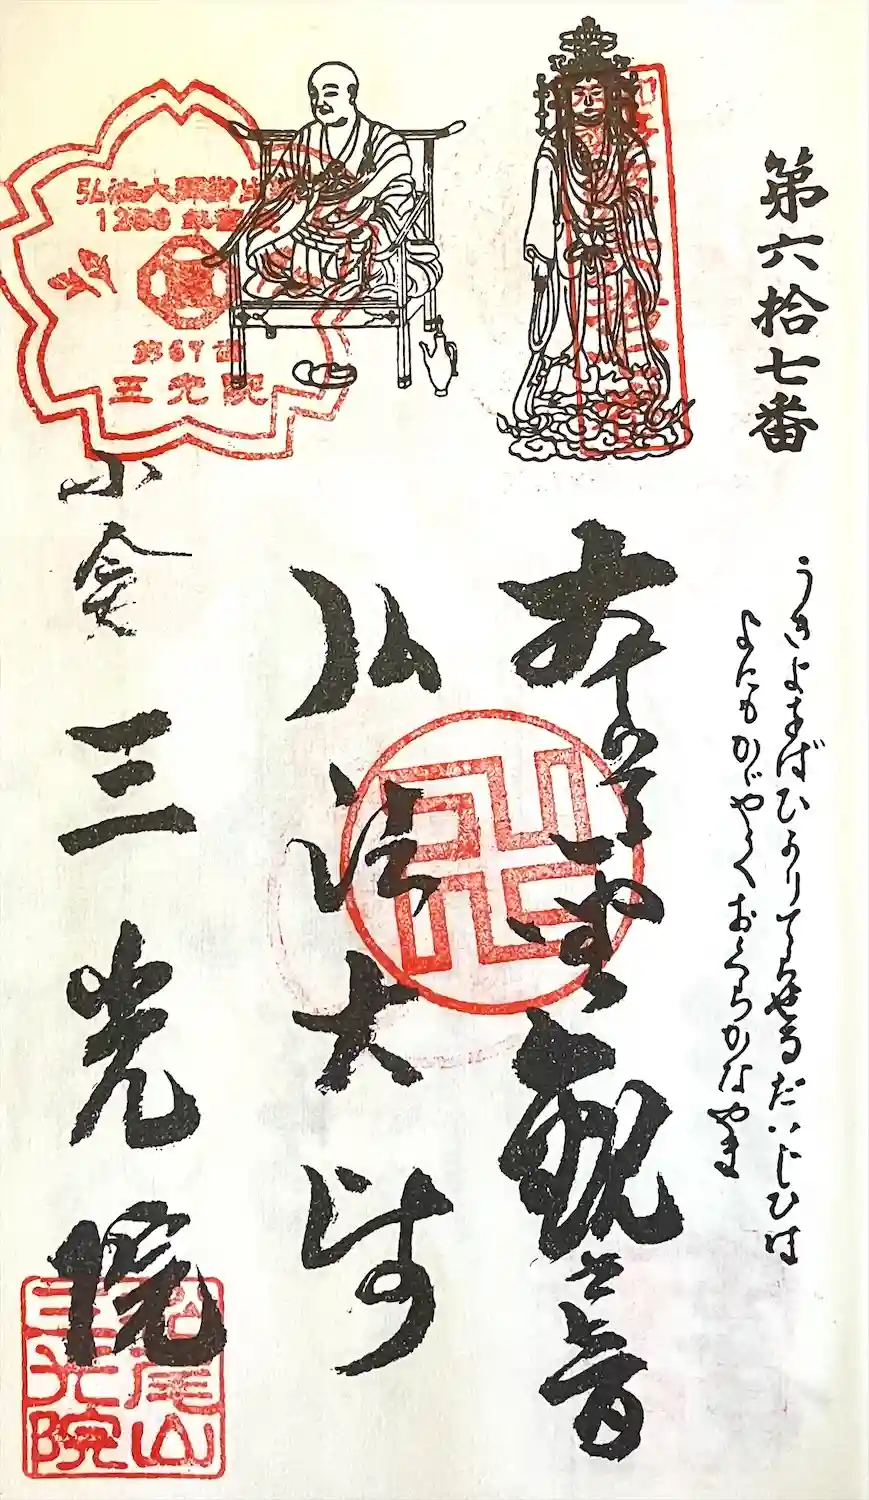 第六拾七番
うきよをばひかりてらせるだいじひは
よにもかゞやくおぐらかなやま
本尊聖観世音
弘法大師
小倉 三光院
弘法大師御
第67番
三光院
松尾山
三光院